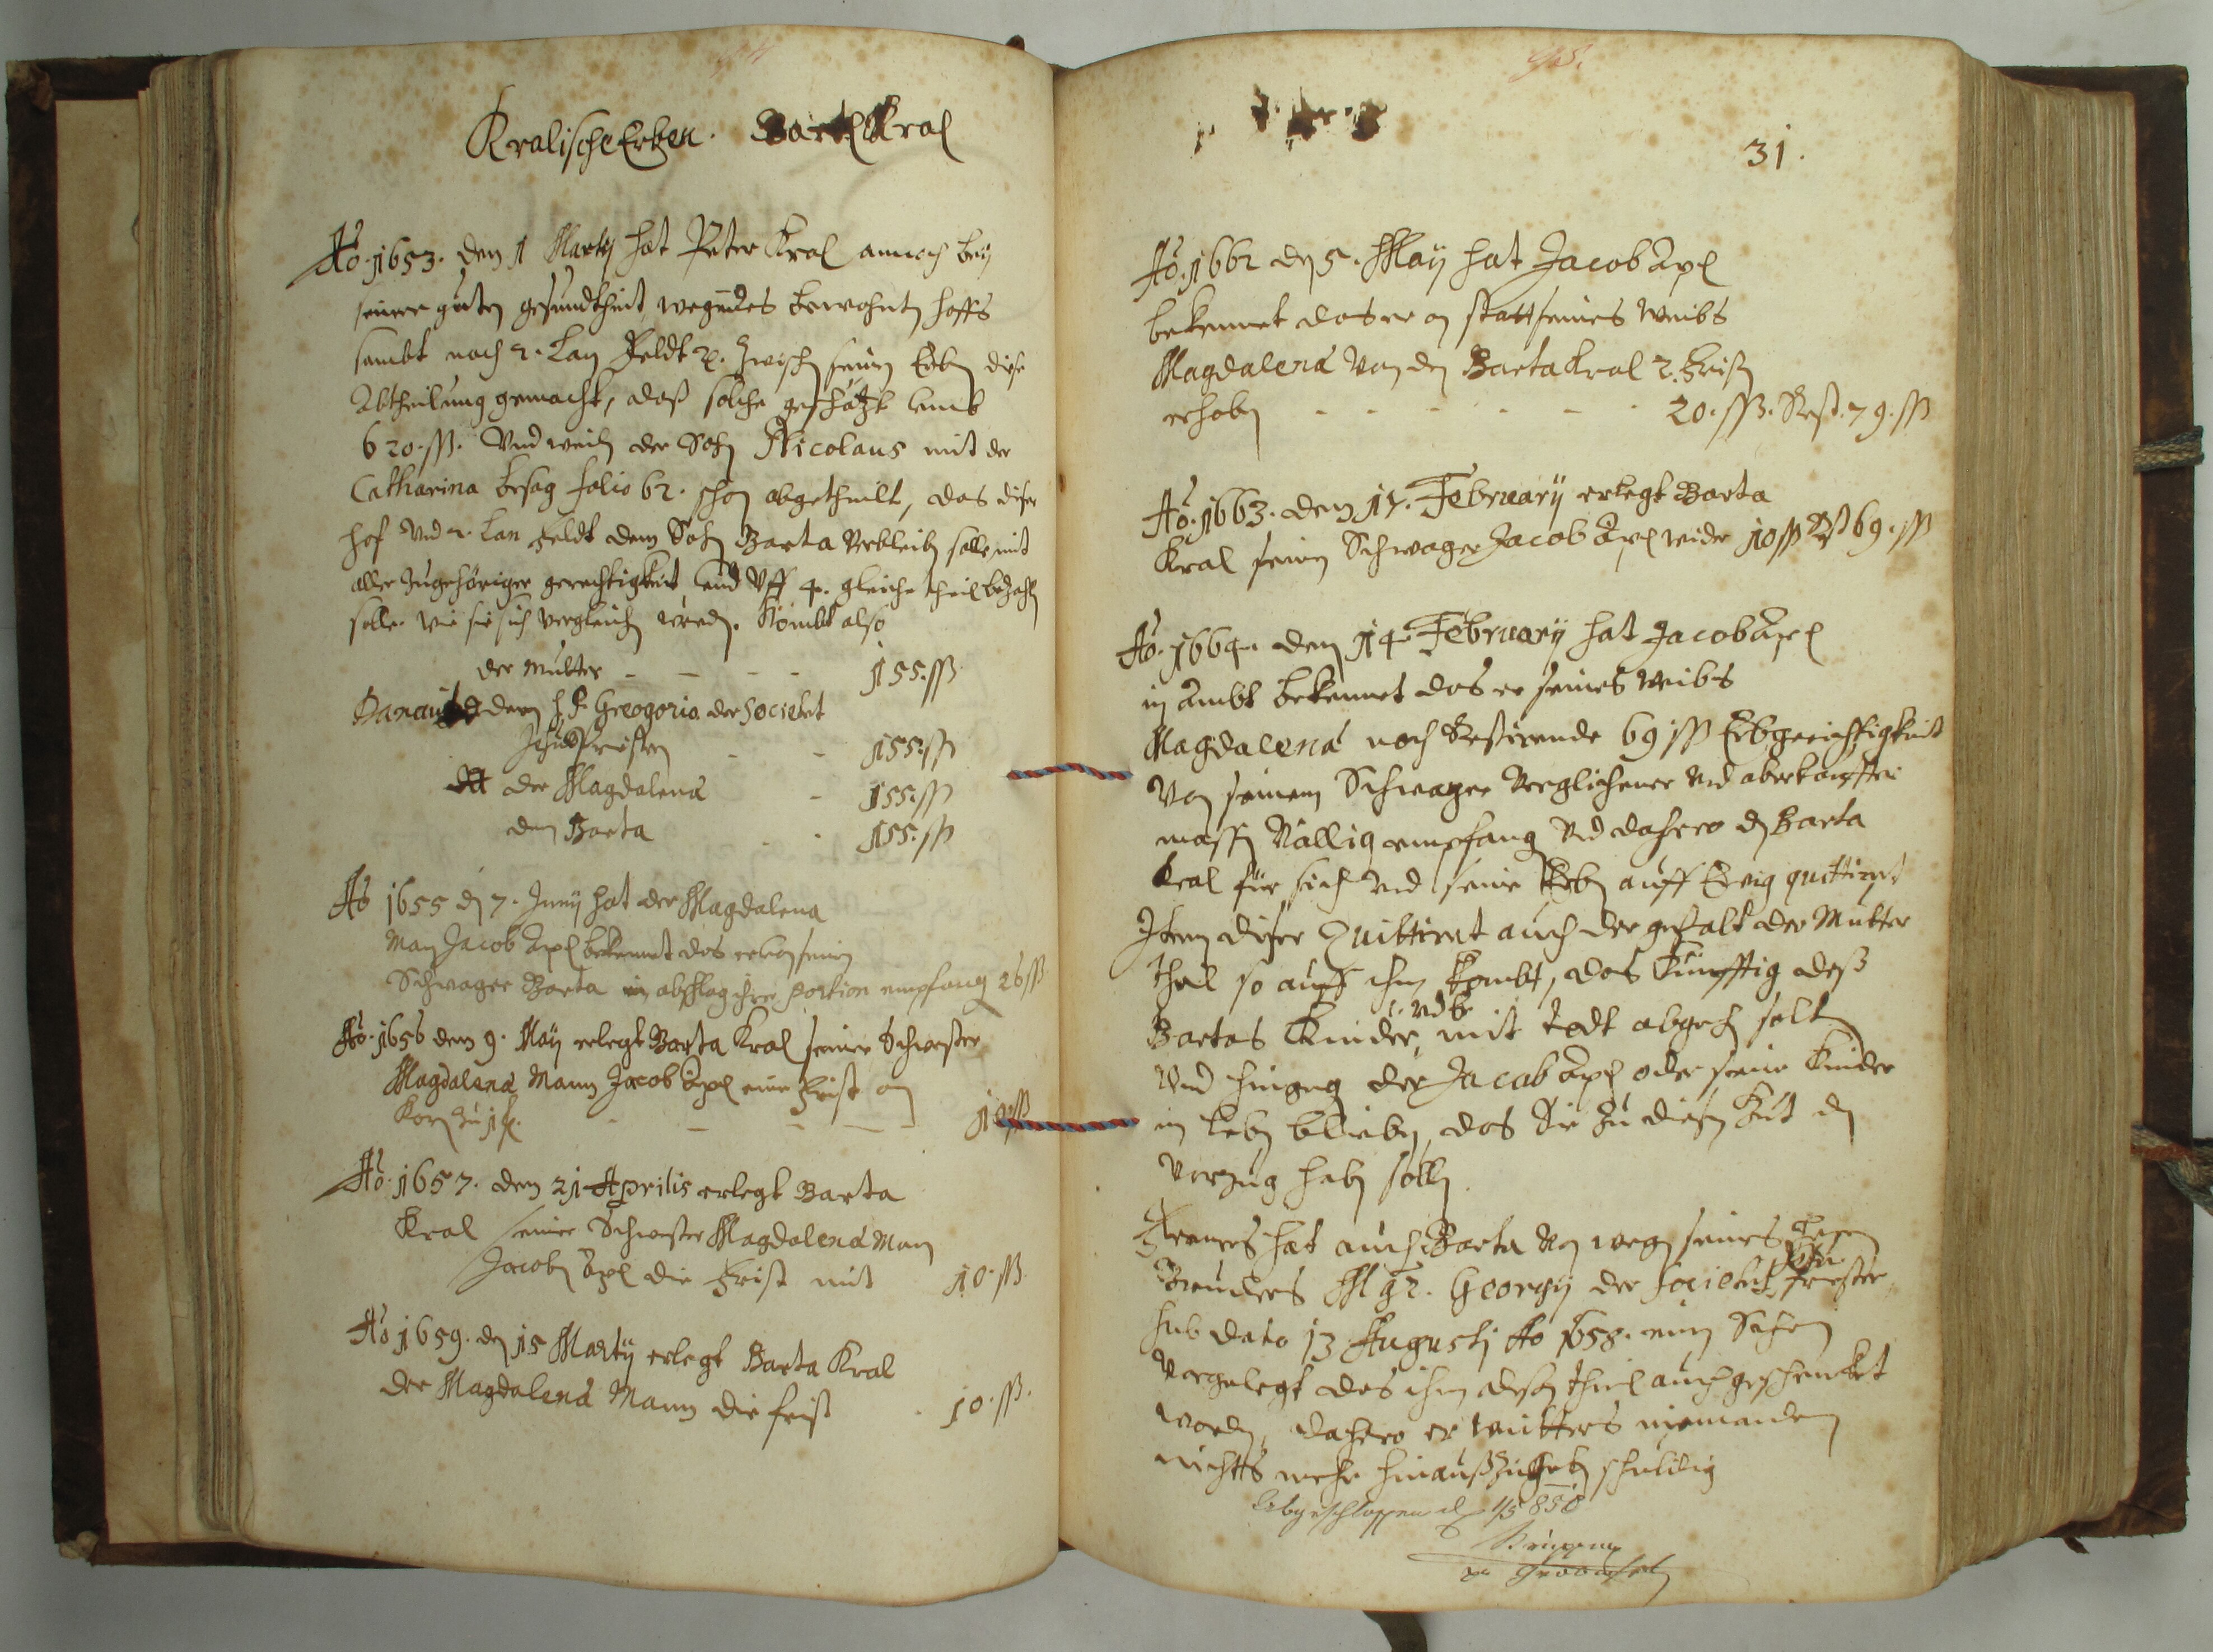 Kralische Erben. Bartl Kral
Ao. 1653. den 1 Marty hat Peter Kral annoch beÿ
seiner guten gesundtheit, wegen des bewohnten hoffs
sambt noch 2. Lan Feldt zwischen seinen Erben diese
Abtheilung gemacht, daß solche geschätzt
620. ßß. Vnd weiln der Sohn Nicolaus mit der
Catharina besag folio 62. schon abgetheilt, das dieser
hof Vnd 2. Lan feldt dem Sohn Barta Verbleiben solle, mit
aller Zugehöriger gerechtigkeit, vnd Vff 4. gleiche theil bezahlen
solle wie sie sich vergleichen werden. Kombt also
der Mutter - - - - 155. ßß
dem H. P. Greogorio der Societet
Jesu Priestern - - 155. ßß
der Magdalena - 155. ßß
dem Barta - - 155. ßß
Ao 1655 den 7. Juny hat der Magdalena
Man Jacob bekennet das er von seinen
Schwager Barta in abschlag ihrer portion empfangen 26 ßß
Ao. 1656 den 9. Maÿ erlegt Barta Kral seiner Schwester
Magdalena Mann Jacob eine Frist an
Korn zu - - - - 10 ßß
Ao. 1657. den 21 Aprilis erlegt Barta
Kral seiner Schwester Magdalena Man
Jacoben die Frist mit 10. ßß
Ao 1659. den 15 Martÿ erlegt Barta Kral
der Magdalena Mann die frist - 10. ßß.
31.
Ao. 1662 den 5. Maÿ hat Jacob
bekennet das er an statt seines Weibs
Magdalena Von den Barta Kral 2. Fristen
erhoben - - - - - - 20. ßß. Rest. 79. ßß
Ao. 1663. den 17. Februarÿ erlegt Barta
Kral seinen Schwager Jacob wider 10 ßß Rest 69. ßß
Ao. 1664. den 14 Februarÿ hat Jacob
in Ambt bekennet das er seines Weibs
Magdalena noch Restirende 69 ßß Erbgerechtigkeit
Von seinem Schwager Verglichener Vnd
massen Völlig empfangen Vnd dahero den Barta
Kral für sich Vnd seine Erben auff Ewig quittiret
Item dieser Quittiret auch der gestalt der Mutter
theil so auf ihm kombt, das Künfftig deß
Bartas Kinder mit todt abgehen solten
Vnd hingegen der Jacob oder seine Kinder
in leben blieben, das Sie zu diesen den
Vorzug haben sollen
Ferners hat auch Barta Von wegen seines
Bruders Georgÿ der Societet Jesu Priester
sub dato 13 Augusti Ao 1658. einen Schein
Vorgelegt das ihm dessen theil auch geschencket
worden, dahero er weitters niemanden
nichts mehr hinauß zugeben schuldig
Abgeschlossen d 1/5 850